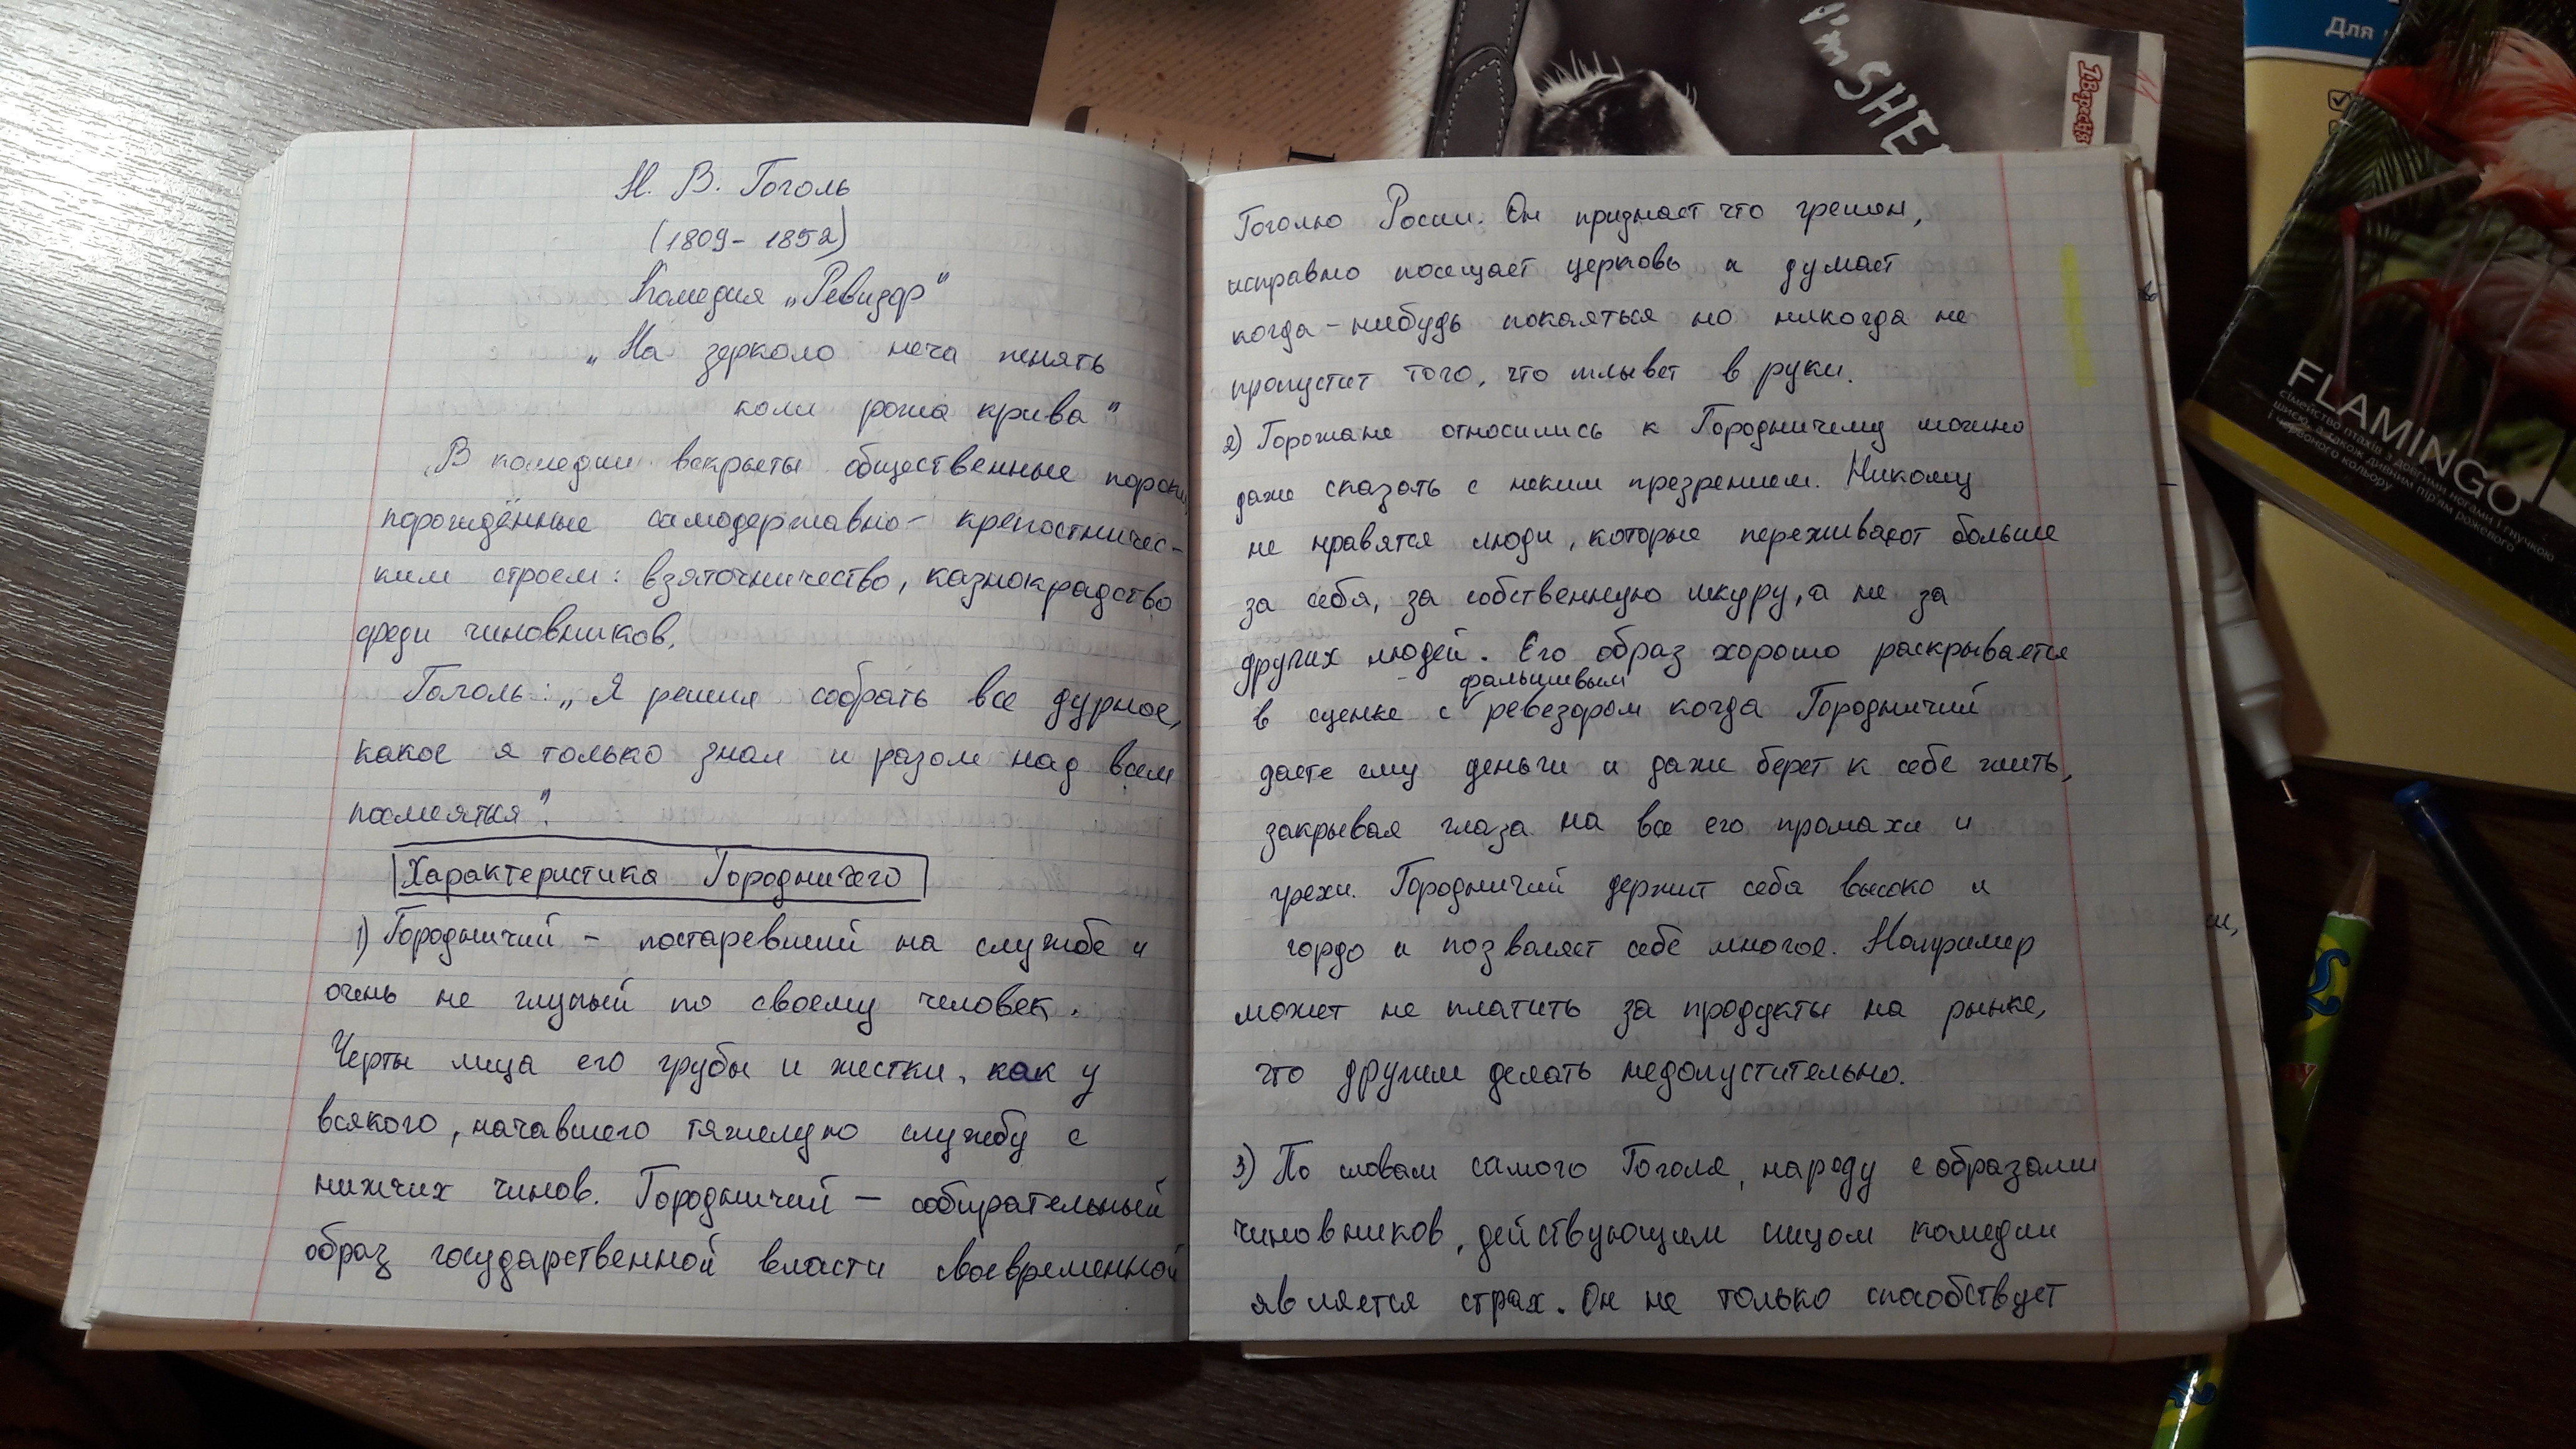 Н. В. Гоголь
(1809 - 1852)
Комедия „Ревизор"
„На зеркало неча пенять
коли рожа крива"
В комедии вскрыты общественные пороки,
порождённые самодержавно-крепостничес-
ким строем: взяточничество, казнокрадство
среди чиновников.
Гоголь: „Я решил собрать все дурное,
какое я только знал и разом над всем
посмеяться".
Характеристика Городничего
1) Городничий - постаревший на службе и
очень не глупый по своему человек.
Черты лица его грубы и жестки, как у
всякого, начавшего тяжелую службу с
нижчих чинов. Городничий – собирательный
образ государственной власти своевременной
Гоголю Росии. Он признает что грешен,
исправно посещает церковь и думает
когда-нибудь покаяться но никогда не
пропустит того, что плывет в руки.
2) Горожане относились к Городничему можно
даже сказать с неким презрением. Никому
не нравятся люди, которые переживают больше
за себя, за собственную шкуру, а не за
других людей. Его образ хорошо раскрывается
фальшивым
в сценке с ревезором когда Городничий
даете ему деньги и даже берет к себе жить,
закрывая глаза на все его промахи и
грехи. Городничий держит себя высоко и
гордо и позволяет себе многое. Например
может не платить за продукты на рынке,
что другим делать недопустительно.
3) По словам самого Гоголя, народу с образами
чиновников, действующим лицом комедии
является страх. Он не только способствует
I'm SHE
1Вересня
Для
FLAMINGO
сімейство птахів з довгими ногами і гнучкою
шиєю, а також дивним пір'ям рожевого
і червоного кольору